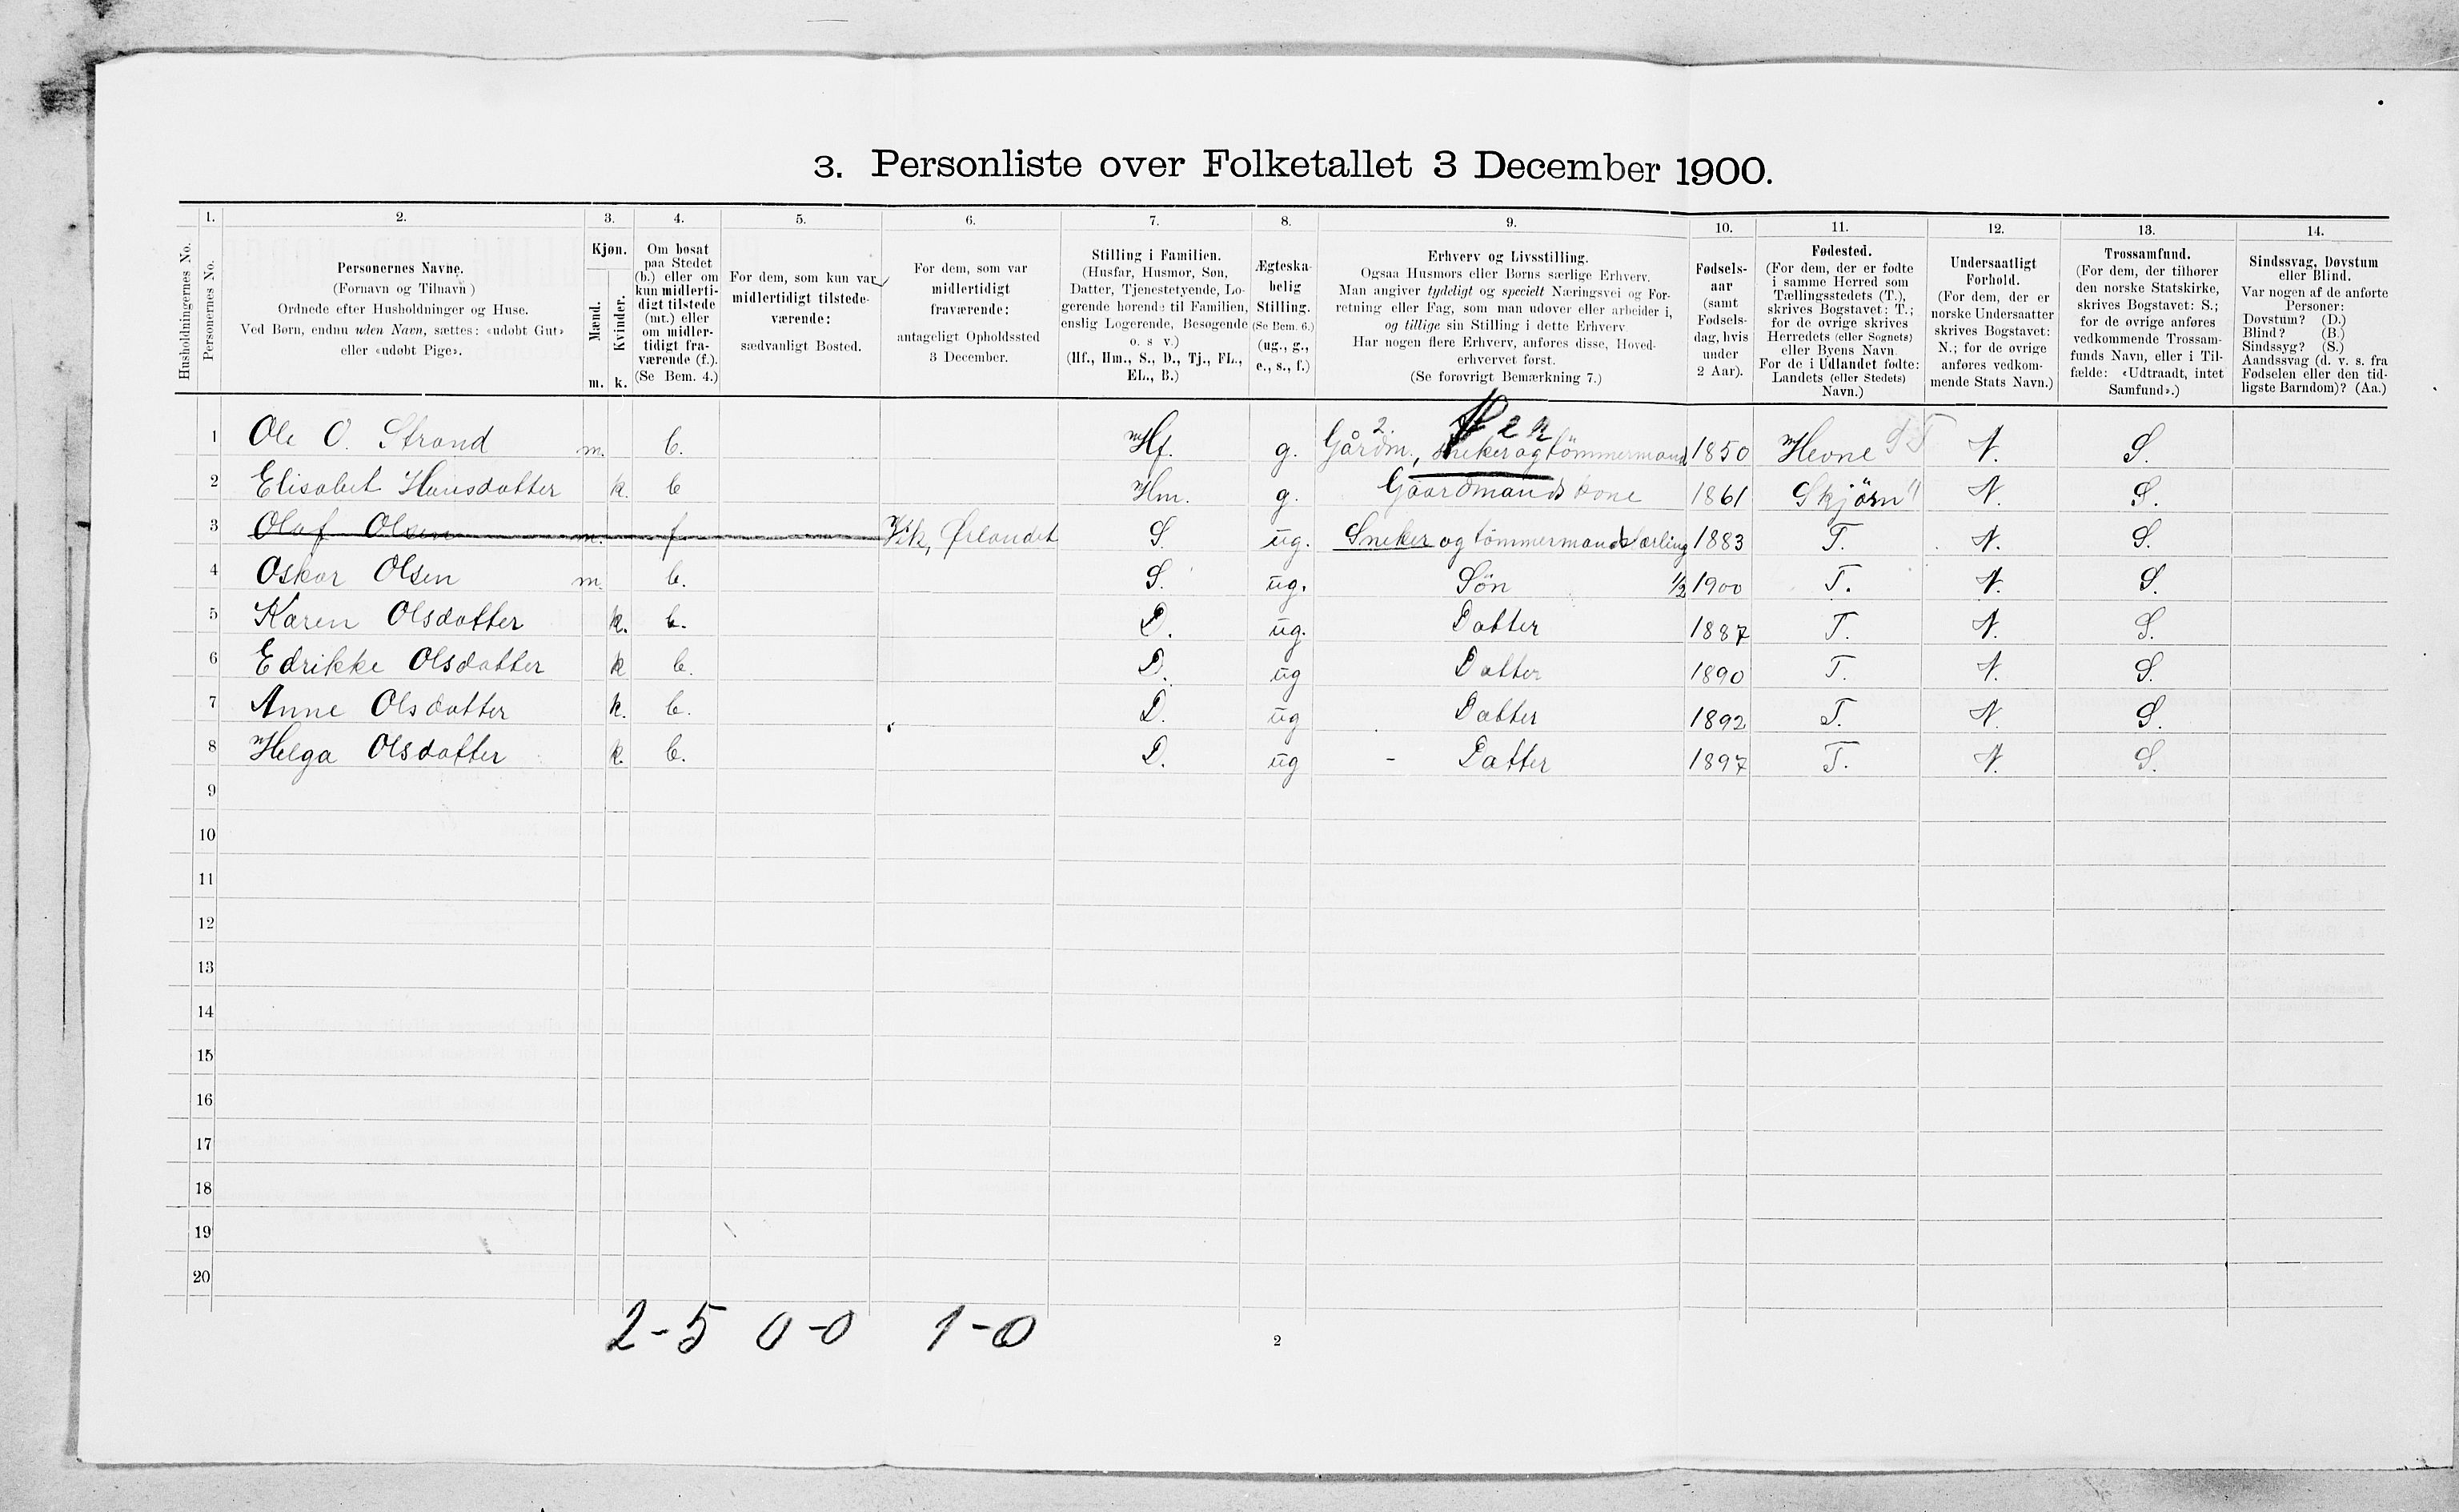 3. Personliste over Folketallet 3 December 1900.
1. 2. 3. 4. 5. 6. 7. 8. 9. 10. 11. 12. 13. 14.
Husholdningernes No.
Personernes No.
Personernes Navne.
(Fornavn og Tilnavn)
Ordnede efter Husholdninger og Huse.
Ved Børn, endnu uden Navn, sættes: «udøbt Gut»
eller «udøbt Pige».
Kjøn.
Mænd.
Kvinder.
m. k.
Om bosat
paa Stedet
(b.) eller om
kun midlerti-
digt tilstede
(mt.) eller
om midler-
tidigt fra-
værende (f.).
(Se Bem. 4.)
For dem, som kun var
midlertidigt tilstede-
værende:
sædvanligt Bosted.
For dem, som var
midlertidigt
fraværende:
antageligt Opholdssted
3 December.
Stilling i Familien.
(Husfar, Husmor, Søn,
Datter, Tjenestetyende, Lo-
gerende hørende til Familien,
enslig Logerende, Besøgende
o. s v.)
(Hf., Hm., S., D., Tj., FL.,
EL., B.)
Ægteska-
belig
Stilling.
(Se Bem. 6.)
(ug., g.,
e., s., f.)
Erhverv og Livsstilling.
Ogsaa Husmors eller Børns særlige Erhverv.
Man angiver tydeligt og specielt Næringsvei og For-
retning eller Fag, som man udøver eller arbeider i,
og tillige sin Stilling i dette Erhverv.
Har nogen flere Erhverv, anføres disse, Hoved-
erhvervet først.
(Se forøvrigt Bemærkning 7.)
Fødsels-
aar
(samt
Fødsels-
dag, hvis
under
2 Aar).
Fødested.
(For dem, der er fødte
i samme Herred som
Tællingsstedets (T.),
skrives Bogstavet: T.;
for de øvrige skrives
Herredets (eller Sognets)
eller Byens Navn.
For de i Udlandet fødte:
Landets (eller Stedets)
Navn.)
Undersaatligt
Forhold.
(For dem, der er
norske Undersaatter
skrives Bogstavet:
N.; for de øvrige
anføres vedkom-
mende Stats Navn.)
Trossamfund.
(For dem, der tilhører
den norske Statskirke,
skrives Bogstavet: S.;
for de øvrige anføres
vedkommende Trossam-
funds Navn, eller i Til-
fælde: «Udtraadt, intet
Samfund».)
Sindssvag, Døvstum
eller Blind.
Var nogen af de anførte
Personer:
Døvstum? (D.)
Blind? (B.)
Sindssyg? (S.)
Aandssvag (d. v. s. fra
Fødselen eller den tid-
ligste Barndom)? (Aa.)
2. 2 R
1 Ole O. Strand m. b. Hf. g. Gårdm., sneker og tömmermand 1850 Hevne N. S.
2 Elisabet Hansdatter k. b Hm. g. Gaardmands kone 1861 Skjörn N. S.
3 Olaf Olsen m. f Vik, Ørlandet S. ug. Sneker og tömmermandslærling 1883 T. N. S.
4 Oskar Olsen m. b. S. ug. Sön 1/2 1900 T. N. S.
5 Karen Olsdatter k. b. D. ug. Datter 1887 T. N. S.
6 Edrikke Olsdatter k b. D. ug Datter 1890 T. N. S.
7 Anne Olsdatter k. b. D. ug Datter 1892 T. N. S.
8 Helga Olsdatter k. b. D. ug - Datter 1897 T. N. S.
9
10
11
12
13
14
15
16
17
18
19
20
2-5 0-0 1-0
2